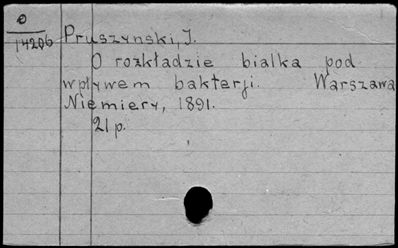 O
14206
Pruszynski, J.
O rozkładzie bialka pod
wpływem bakterji. Warszawa
Niemiery, 1891.
21 p.